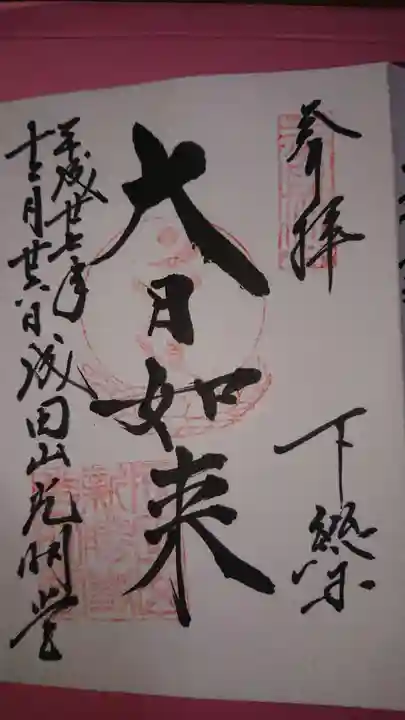 奉拝
下総国
大日如来
平成廿七年
十二月廿六日成田山光明堂